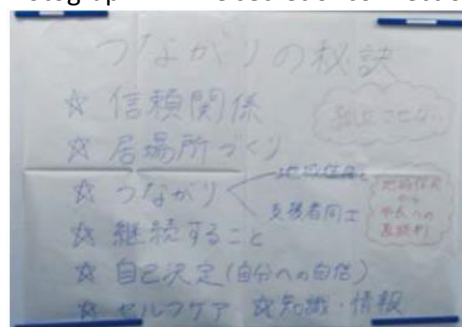 つながりの秘訣
☆ 信頼関係
孤立させない
☆ 居場所づくり
☆ つながり
地域住民と
支援者同士
地域住民
から
☆ 継続すること
☆ 自己決定(自分への自信)
☆ セルフケア ☆ 知識・情報